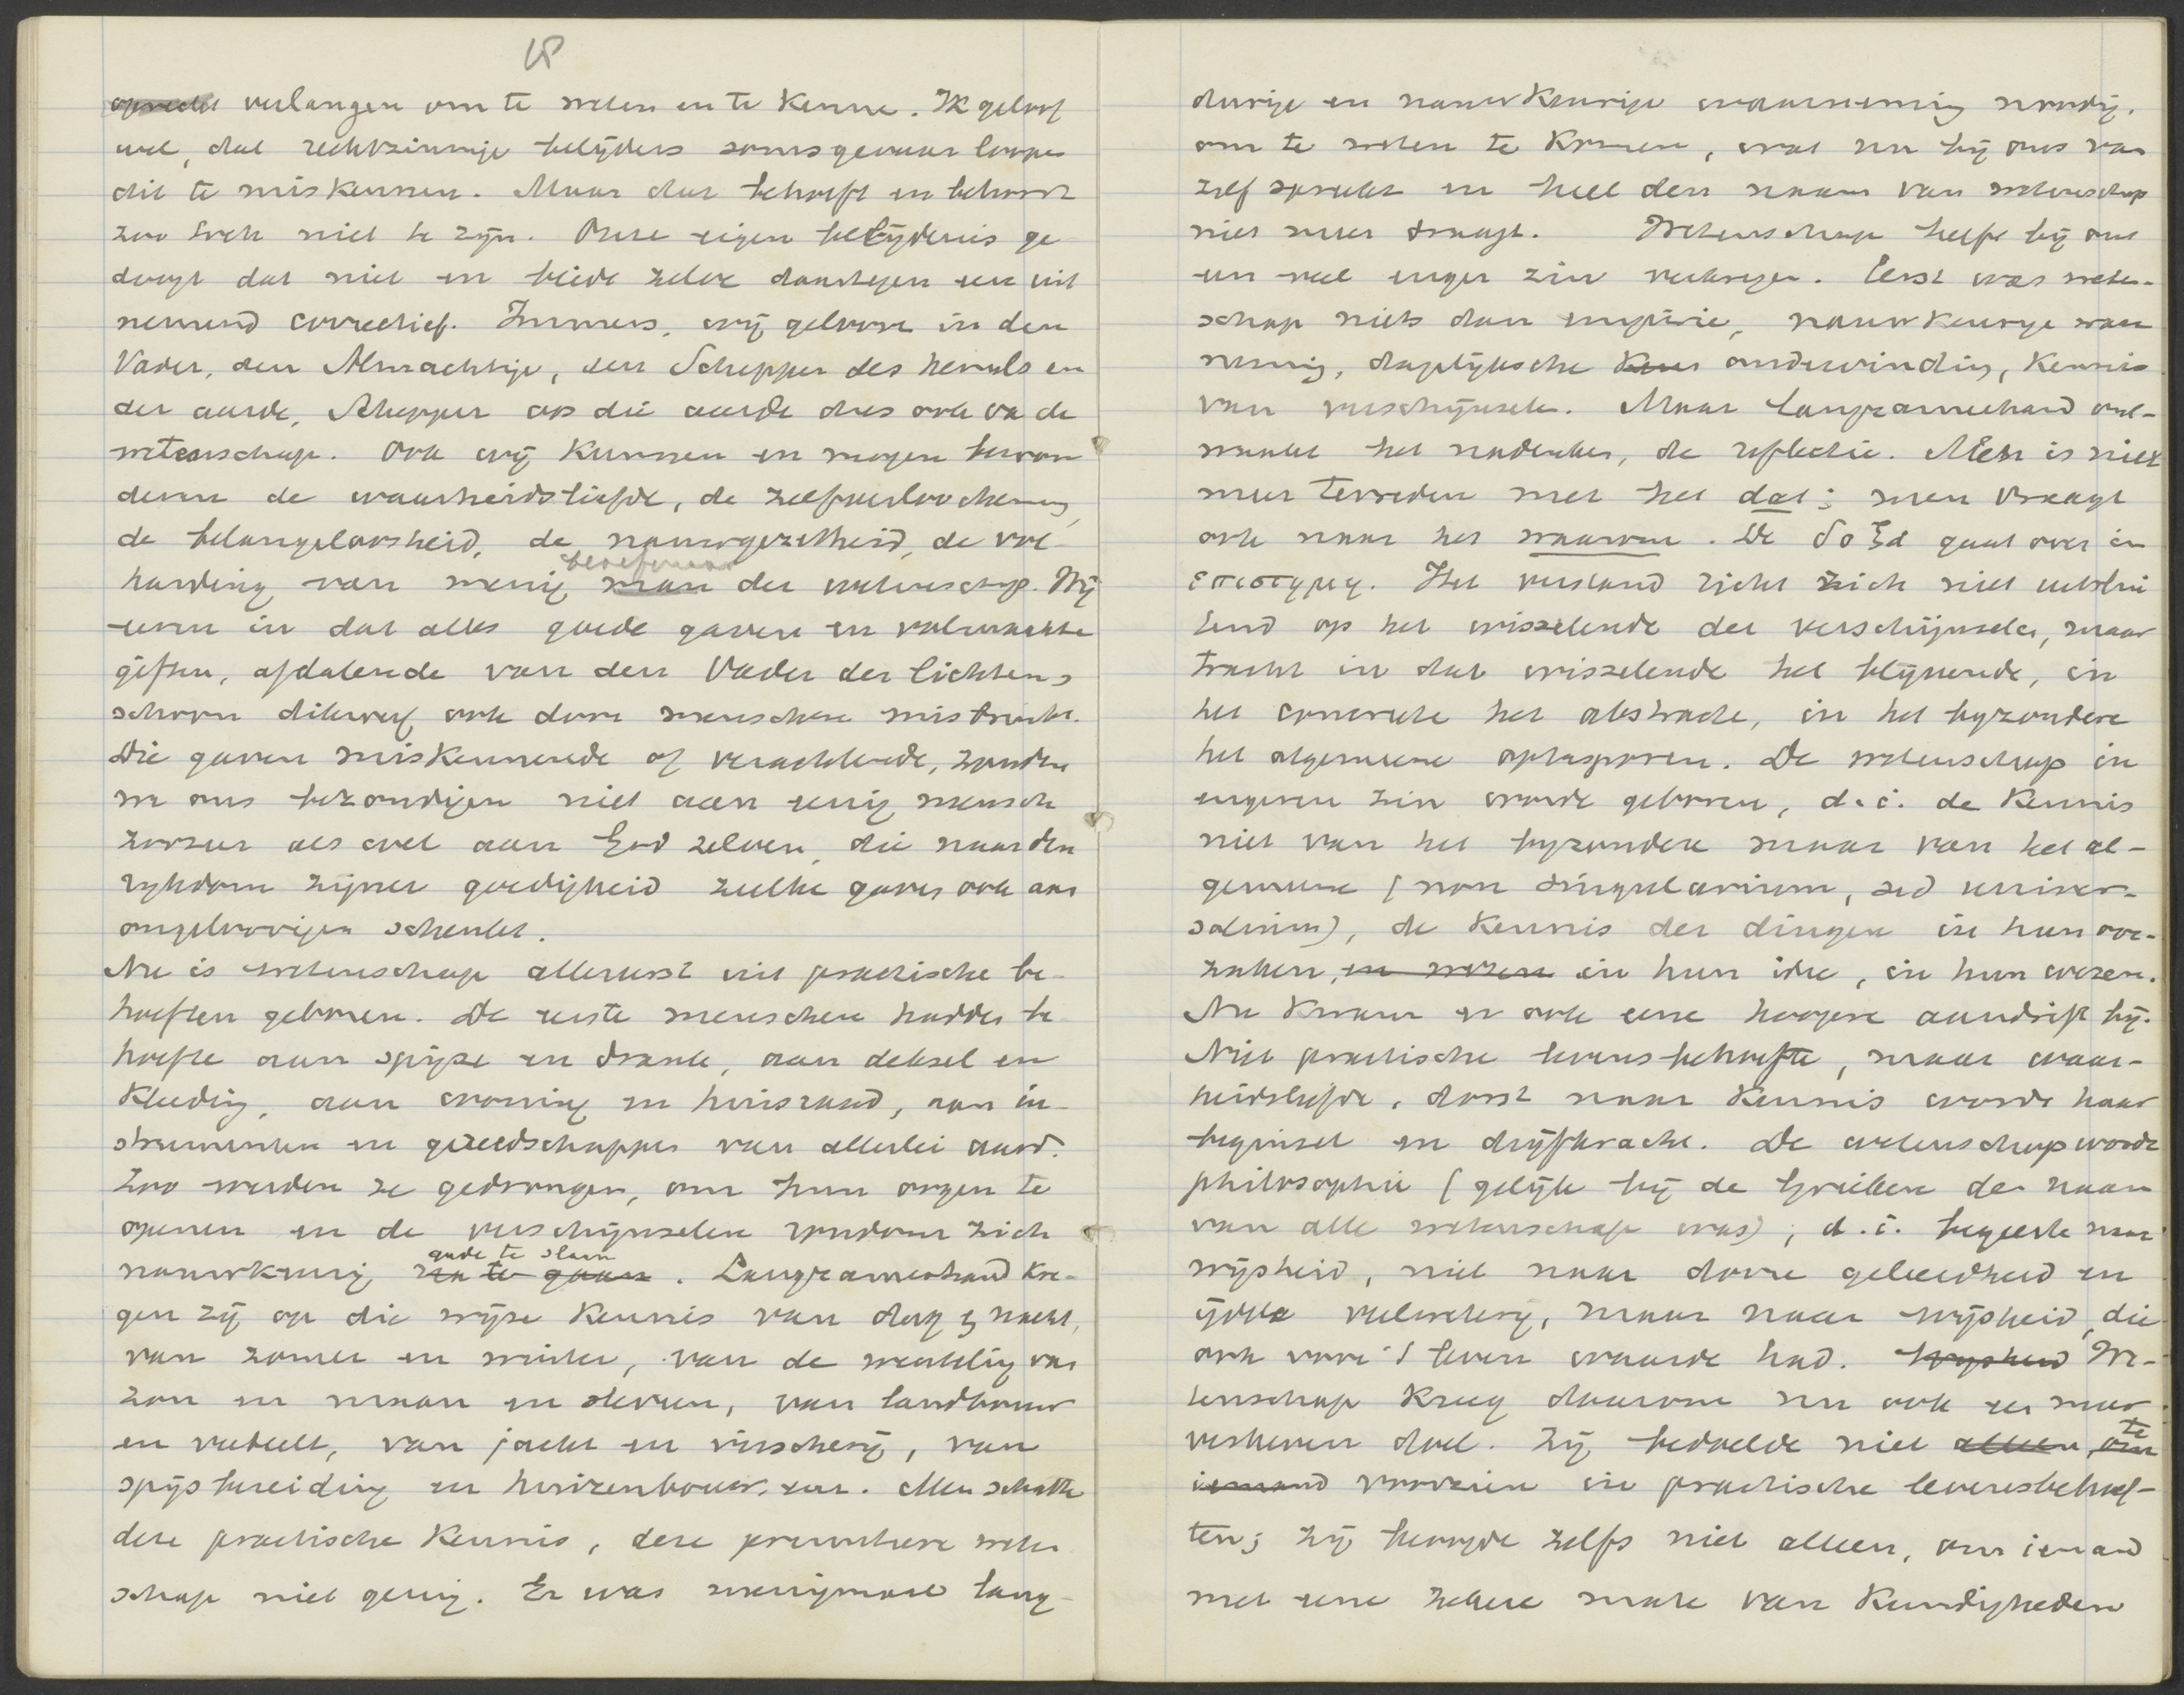 18
oprecht verlangen om te weten en te kennen. Ik geloof
wel, dat rechtzinnige belijders soms gevaar loopen
dit te miskennen. Maar dat behoeft en behoort
zoo toch niet te zijn. Onze eigen belijdenis ge
doogt dat niet en biedt zelve daartegen een uit
nemend correctief. Immers, wij gelooven in den
Vader, den Almachtige, den Schepper des hemels en
der aarde, Schepper op die aarde dus ook van de
wetenschap. Ook wij kunnen en mogen bewon
deren de waarheidsliefde, de zelfverloochening,
de belangeloosheid, de nauwgezetheid, de vol-
harding van menig beoefenaar man der wetenschap. Wij
eeren in dat alles goede gaven en volmaakte
giften, afdalende van den Vader der lichten,
schoon dikwerf ook door menschen misbruikt.
Die gaven miskennende of verachtende, zouden
we ons bezondigen niet aan eenig mensch
zoozeer als wel aan God zelven, die naar den
rijkdom zijner goedigheid zulke gaven ook aan
ongeloovigen schenkt.
Nu is wetenschap allereerst uit practische be-
hoeften geboren. De eerste menschen hadden be
hoefte aan spijze en drank, aan deksel en
kleeding, aan woning en huisraad, aan in-
strumenten en gereedschappen van allerlei aard.
Zoo werden ze gedrongen, om hun oogen te
openen en de verschijnselen rondom zich
nauwkeurig gade te slaan na te gaan. Langzamerhand kre-
gen zij op die wijze kennis van dag en nacht,
van zomer en winter, van de wenteling van
zon en maan en sterren, van landbouw
en veeteelt, van jacht en visscherij, van
spijsbereiding en huizenbouw, enz. Men schatte
deze practische kennis, deze primitieve weten
schap niet gering. Er was menigmaal lang-
durige en nauwkeurige waarneming noodig,
om te weten te komen, wat nu bij ons van
zelf spreekt en heel den naam van wetenschap
niet meer draagt. Wetenschap heeft bij ons
een veel enger zin verkregen. Eerst was weten-
schap niets dan empirie, nauwkeurige waar
neming, dagelijksche ondervinding, kennis
van verschijnselen. Maar langzamerhand ont-
waakt het nadenken, de reflectie. Men is niet
meer tevreden met het dat; men vraagt
ook naar het waarom. De δοξα gaat over in
επιστημη. Het verstand richt zich niet uitslui
tend op het wisselende der verschijnselen, maar
tracht in dat wisselende het blijvende, in
het concrete het abstracte, in het byzondere
het algemeene optesporen. De wetenschap in
engeren zin wordt geboren, d.i. de kennis
niet van het byzondere maar van het al-
gemeene (non singularium, sed univer-
salium), de kennis der dingen in hun oor-
zaken, en wezen in hun idee, in hun wezen.
Nu kwam er ook eene hoogere aandrift bij.
Niet practische levensbehoefte, maar waar-
heidsliefde, dorst naar kennis wordt haar
beginsel en drijfkracht. De wetenschap wordt
philosophie (gelijk bij de Grieken de naam
van alle wetenschap was), d.i. begeerte naar
wijsheid, niet naar dorre geleerdheid en
ijdele veelweterij, maar naar wijsheid, die
ook voor 't leven waarde had. Wijsheid We-
tenschap kreeg daarom nu ook een meer
verheven doel. Zij bedoelde niet alleen, om te
iemand voorzien in practische levensbehoef-
ten; zij beoogde zelfs niet alleen, om iemand
met eene zekere mate van kundigheden